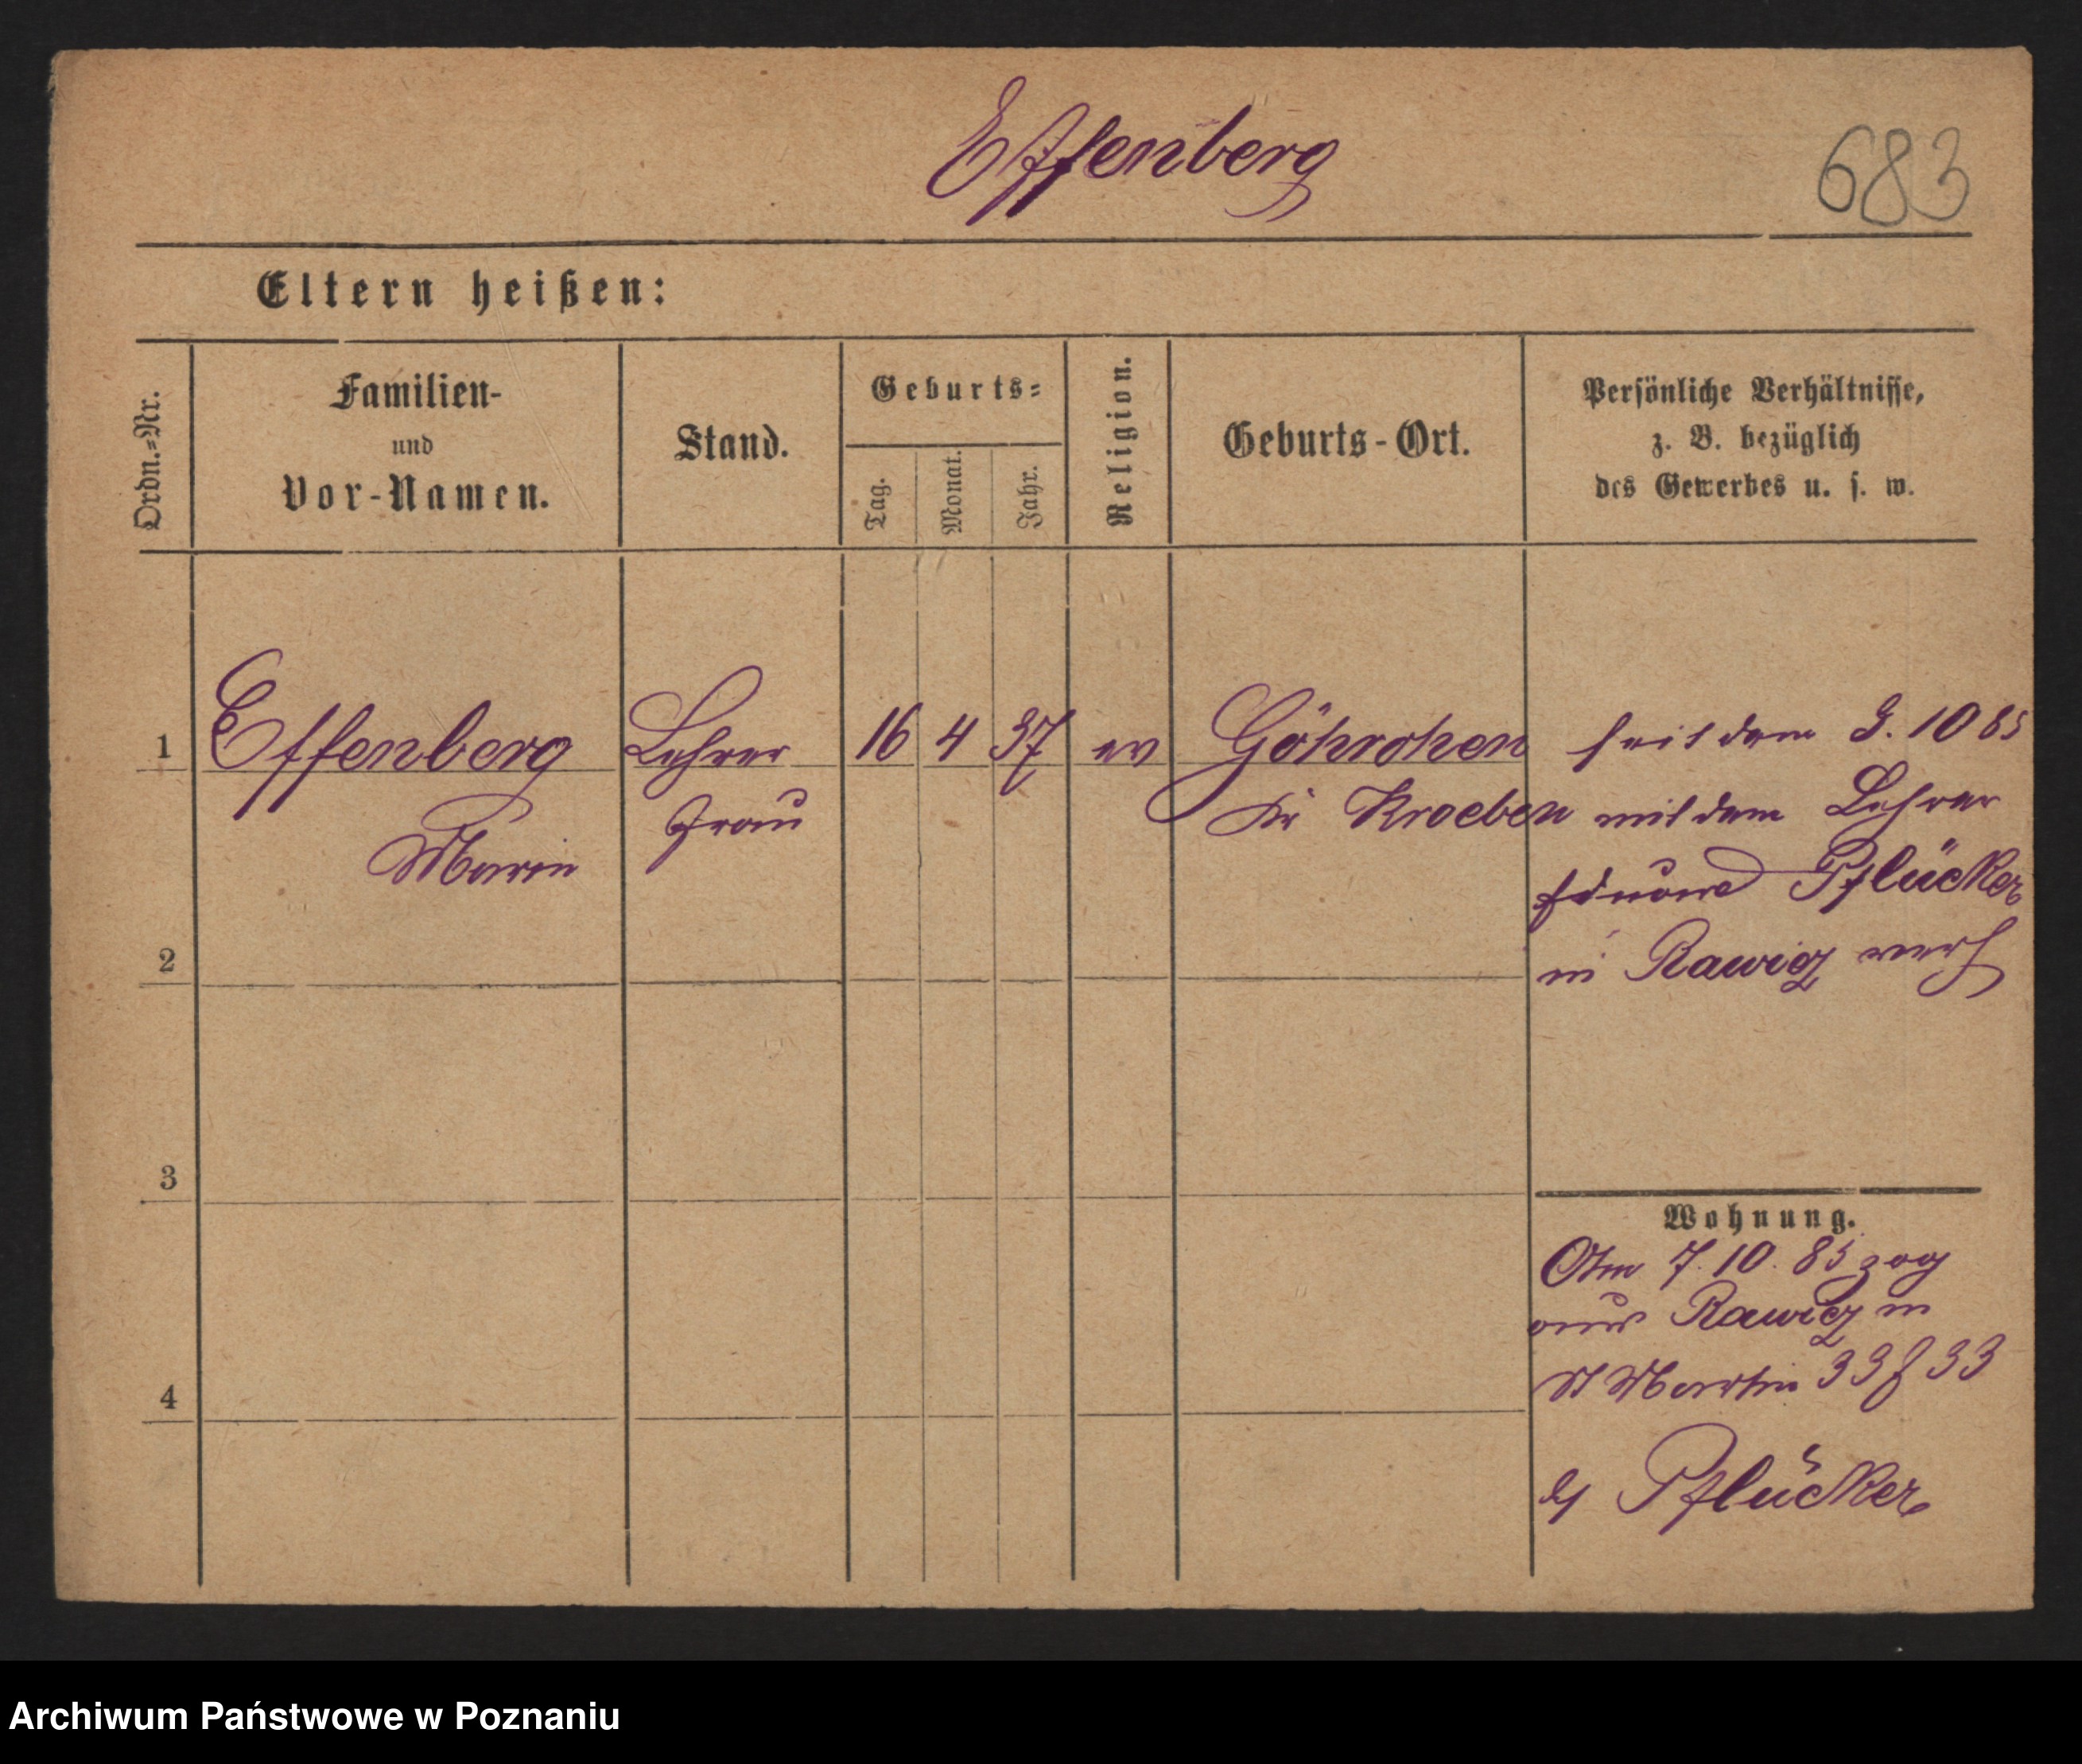 Effenberg
683
Eltern heißen:
Ordn.=Nr.
Familien-
und
Vor-Namen.
Stand.
Geburts=
Tag.
Monat.
Jahr.
Religion.
Geburts-Ort.
Persönliche Verhältnisse,
z. B. bezüglich
des Gewerbes u. s. w.
1
Effenberg
Marie
Lehrer
Frau
16
4
37
ev
Kr Kroeben
seit dem 3. 10 85
mit dem Lehrer
Eduard Pflücker
in Rawicz verh
2
3
4
Wohnung.
Am 7. 10. 85 zog
aus Rawicz in
St Martin 33 33
Pflücker
Archiwum Państwowe w Poznaniu